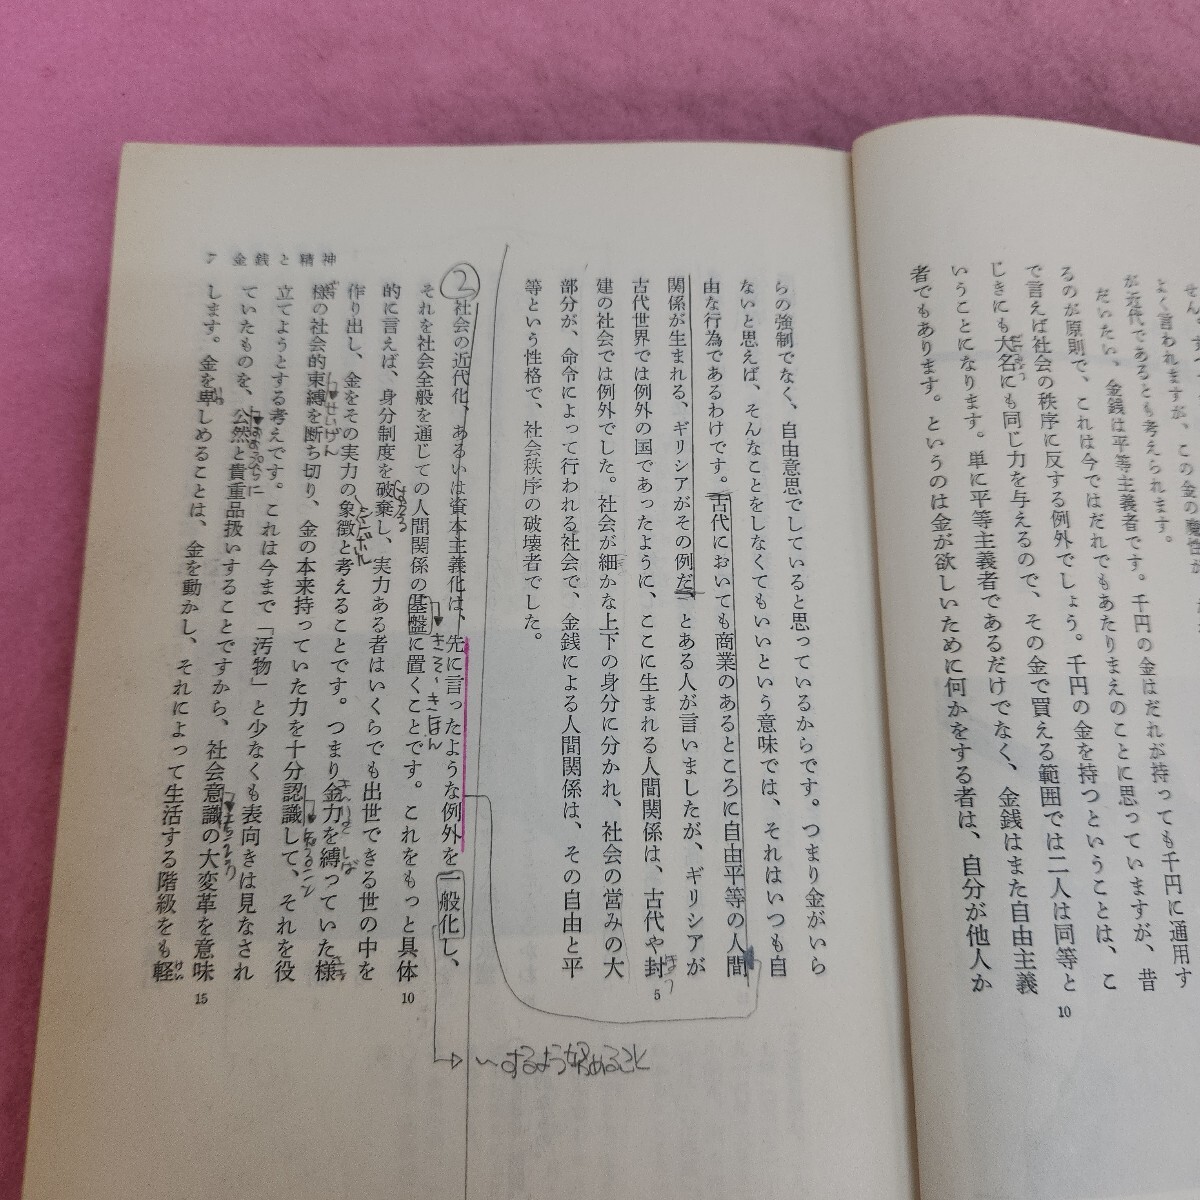 よく言われますが、この金の
が近代であるとも考えられます。
だいたい、金銭は平等主義者です。千円の金はだれが持っても千円に通用す
るのが原則で、これは今ではだれでもあたりまえのことに思っていますが、昔
で言えば社会の秩序に反する例外でしょう。千円の金を持つということは、こ
じきにも大名にも同じ力を与えるので、その金で買える範囲では二人は同等と
いうことになります。単に平等主義者であるだけでなく、金銭はまた自由主義
者でもあります。というのは金が欲しいために何かをする者は、自分が他人か
10
らの強制でなく、自由意思でしていると思っているからです。つまり金がいら
ないと思えば、そんなことをしなくてもいいという意味では、それはいつも自
由な行為であるわけです。古代においても商業のあるところに自由平等の人間
関係が生まれる、ギリシアがその例だ、とある人が言いましたが、ギリシアが
古代世界では例外の国であったように、ここに生まれる人間関係は、古代や封
建の社会では例外でした。社会が細かな上下の身分に分かれ、社会の営みの大
部分が、命令によって行われる社会で、金銭による人間関係は、その自由と平
等という性格で、社会秩序の破壊者でした。
5
②
社会の近代化、あるいは資本主義化は、先に言ったような例外を一般化し、
それを社会全般を通じての人間関係の基盤に置くことです。これをもっと具体
的に言えば、身分制度を破棄し、実力ある者はいくらでも出世できる世の中を
作り出し、金をその実力の象徴と考えることです。つまり金力を縛っていた様
様の社会的束縛を断ち切り、金の本来持っていた力を十分認識して、それを役
立てようとする考えです。これは今まで「汚物」と少なくも表向きは見なされ
ていたものを、公然と貴重品扱いすることですから、社会意識の大変革を意味
します。金を卑しめることは、金を動かし、それによって生活する階級をも軽
10
15
7 金銭と精神
きそ、きほん
シンボル
せいげん
〜するよう始めること